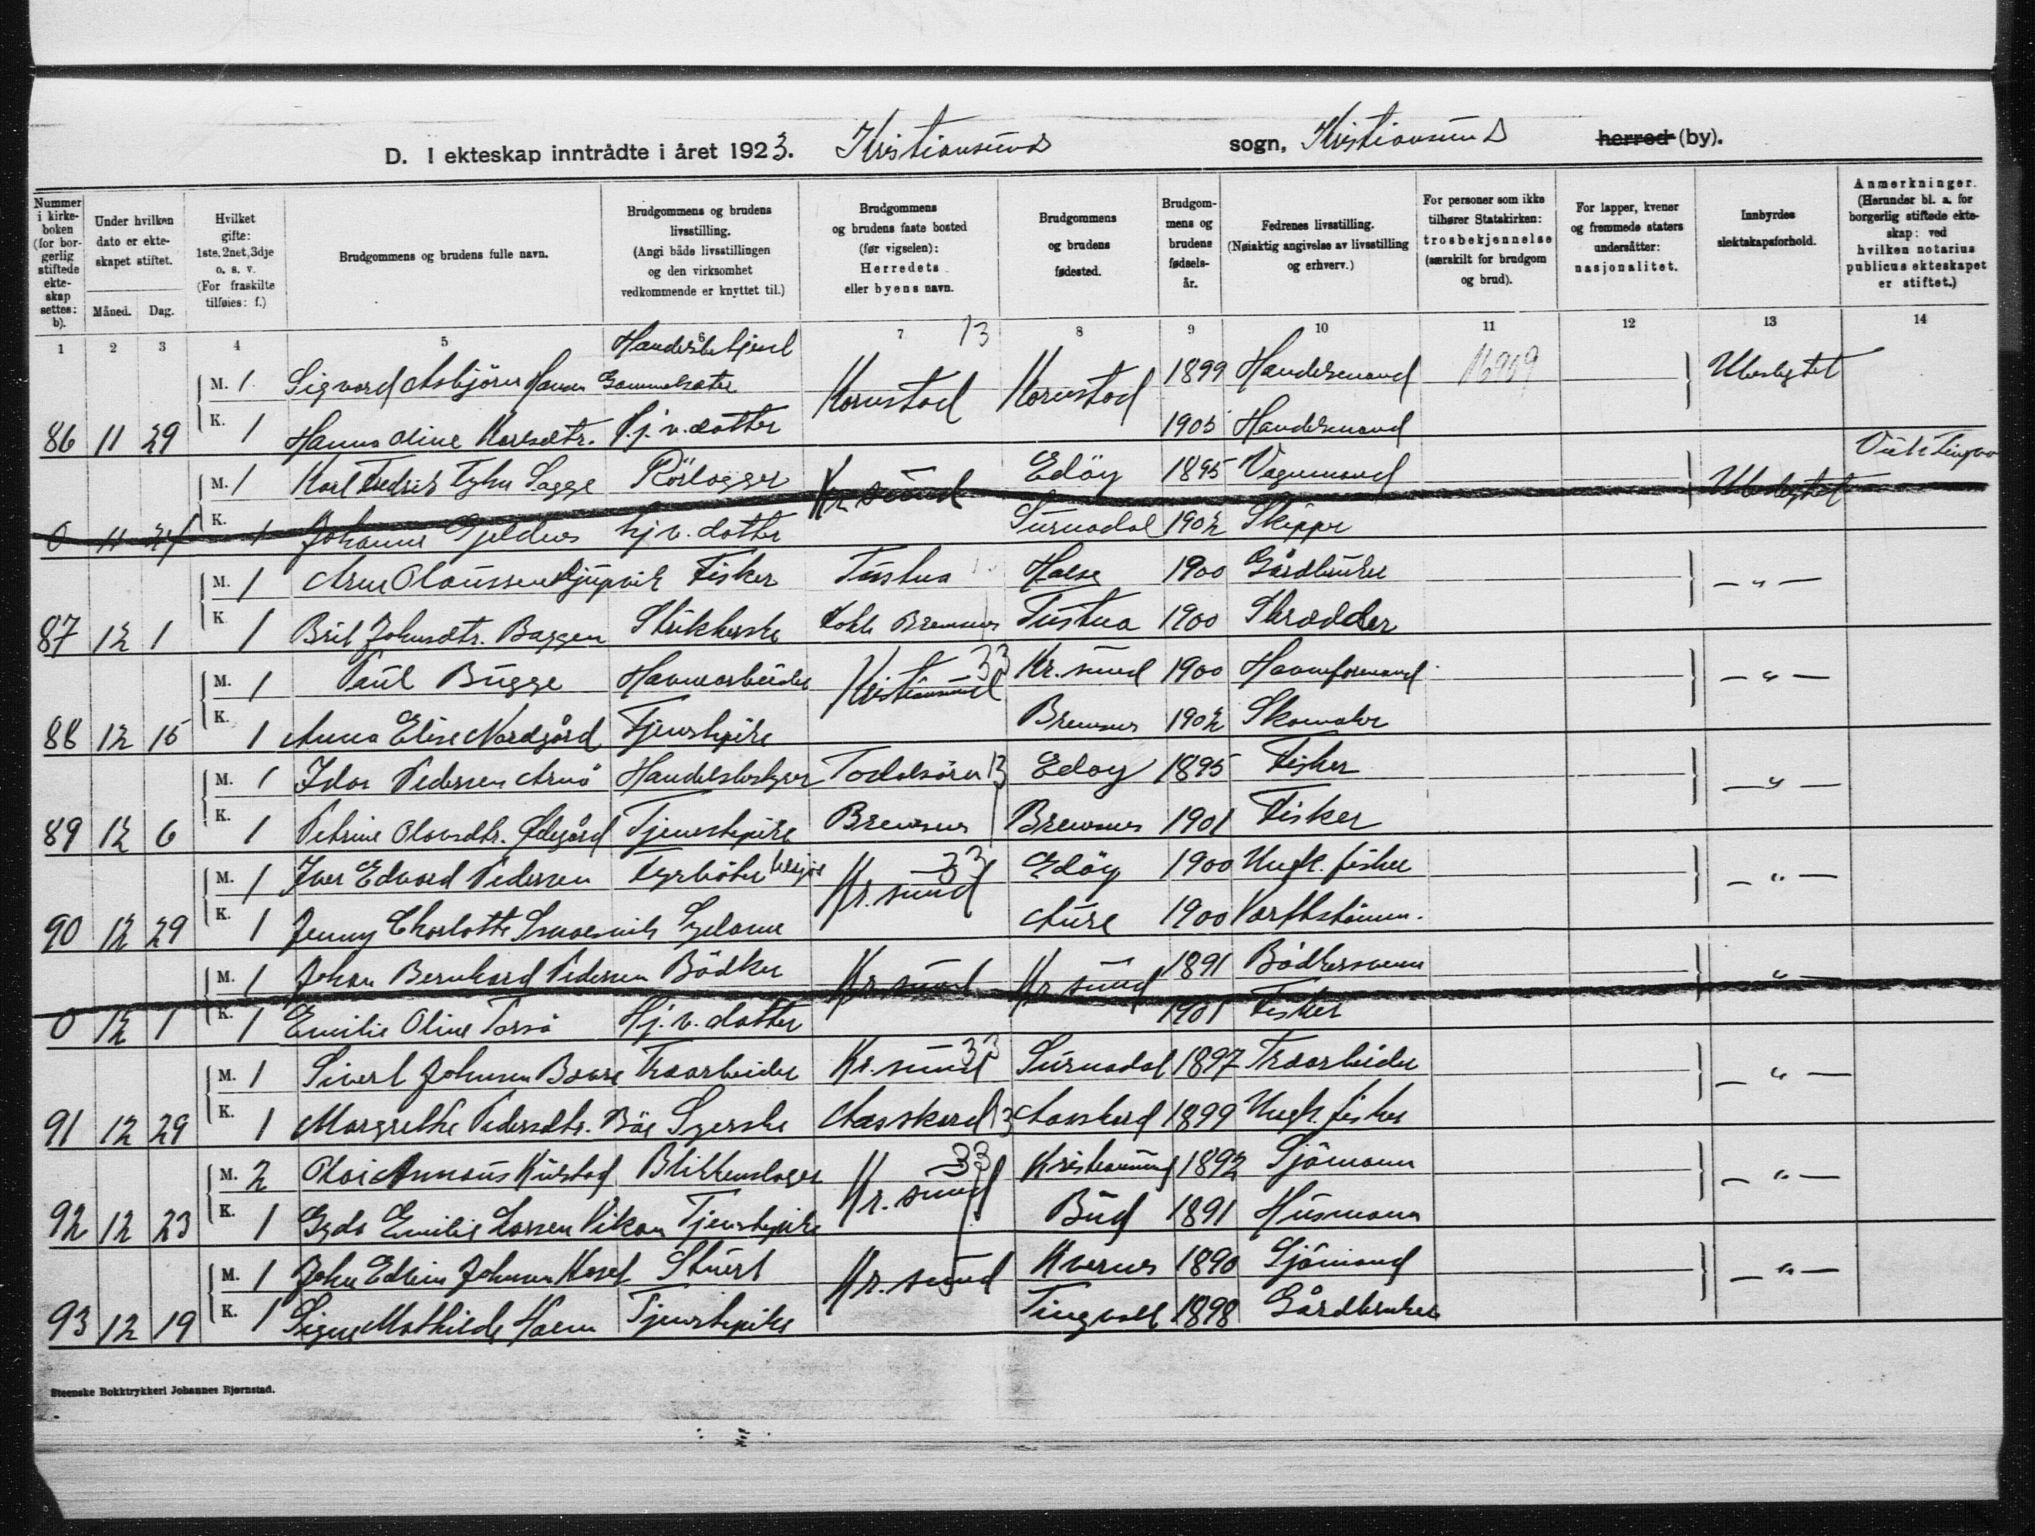 D. I ekteskap inntrådte i året 1923. Kristiansund sogn, Kristiansund herred (by).
Nummer i kirkeboken (for borgerlig stiftede ekteskap settes: b).
Under hvilken dato er ekteskapet stiftet.
Måned. Dag.
Hvilket gifte: 1ste, 2net, 3dje o. s. v. (For fraskilte tilføies: f.)
Brudgommens og brudens fulle navn.
Brudgommens og brudens livsstilling. (Angi både livsstillingen og den virksomhet vedkommende er knyttet til.)
Brudgommens og brudens faste bosted (før vigselen): Herredets eller byens navn.
Brudgommens og brudens fødested.
Brudgommens og brudens fødselsår.
Fedrenes livsstilling. (Nøiaktig angivelse av livsstilling og erhverv.)
For personer som ikke tilhører Statskirken: trosbekjennelse (særskilt for brudgom og brud).
For lapper, kvener og fremmede staters undersåtter: nasjonalitet.
Innbyrdes slektskapsforhold.
Anmerkninger. (Herunder bl. a. for borgerlig stiftede ekteskap: ved hvilken notarius publicus ekteskapet er stiftet.)
1 2 3 4 5 6 7 13 8 9 10 11 12 13 14
Handelsbetjent
M. 1 Sigvard Asbjörn Hansen Gammelsæter Kornstad Kornstad 1899 Handelsmand 16909 Ubeslegtet
86 11 29 K. 1 Hanna Oline Karlsdtr. Hj. v. datter 1905 Handelsmand
M. 1 Karl Fredrik Sagge Rörlegger Kr. sund Edöy 1895 Vognmand Ubeslegtet
0 11 24 K. 1 Johanne Gjeldnes hj. v. datter Surnadal 1902 Skipper
M. 1 Arne Olaussen Fisker Tustna Halse 1900 Gårdbruker — " —
87 12 1 K. 1 Brit Johnsdtr. Baggen Strikkerske Bremsnes Tustna 1900 Skrædder
M. 1 Paul Bugge Havnearbeider Kristiansund 33 Kr. sund 1900 Havneformand — " —
88 12 15 K. 1 Anna Elise Nordgård Tjenstepike Bremsnes 1902 Skomaker
M. 1 Idar Pedersen Arnö Handelsbestyrer Toddalsöra 13 Edøy 1895 Fisker — " —
89 12 6 K. 1 Petrine Olavsdtr. Ødegård Tjenstepike Bremsnes Bremsnes 1901 Fisker
M. 1 Iver Edvard Pedersen Fyrböter Kr. sund 33 Edöy 1900 Ungk. fisker — " —
90 12 29 K. 1 Jenny Charlotte Smaesvik Sydame Aure 1900 Værftstömm.
M. 1 Johan Bernhard Pedersen Bödker Kr. sund Kr. sund 1891 Bödkersvenn "
0 12 1 K. 1 Emilie Oline Torsö Hj. v. datter 1901 Fisker
M. 1 Sivert Johnsen Træarbeider Kr. sund 33 Surnadal 1897 Træarbeider — " —
91 12 29 K. 1 Margrethe Pedersdtr. Böe Syerske Aasskard 13 Aasskard 1899 Ungk. fisker
M. 2 Olai Blikkenslager Kr. sund 33 Kristiansund 1892 Sjömann — " —
92 12 23 K. 1 Gyda Emilie Larsen Vikan Tjenstepike Bud 1891 Husmann
M. 1 John Edvin Johnsen Stuert Kr. sund Kvernes 1890 Sjömand — " —
93 12 19 K. 1 Signe Mathilde Holm Tjenstepike Tingvoll 1898 Gårdbruker
Steenske Bokktrykkeri Johannes Bjørnstad.